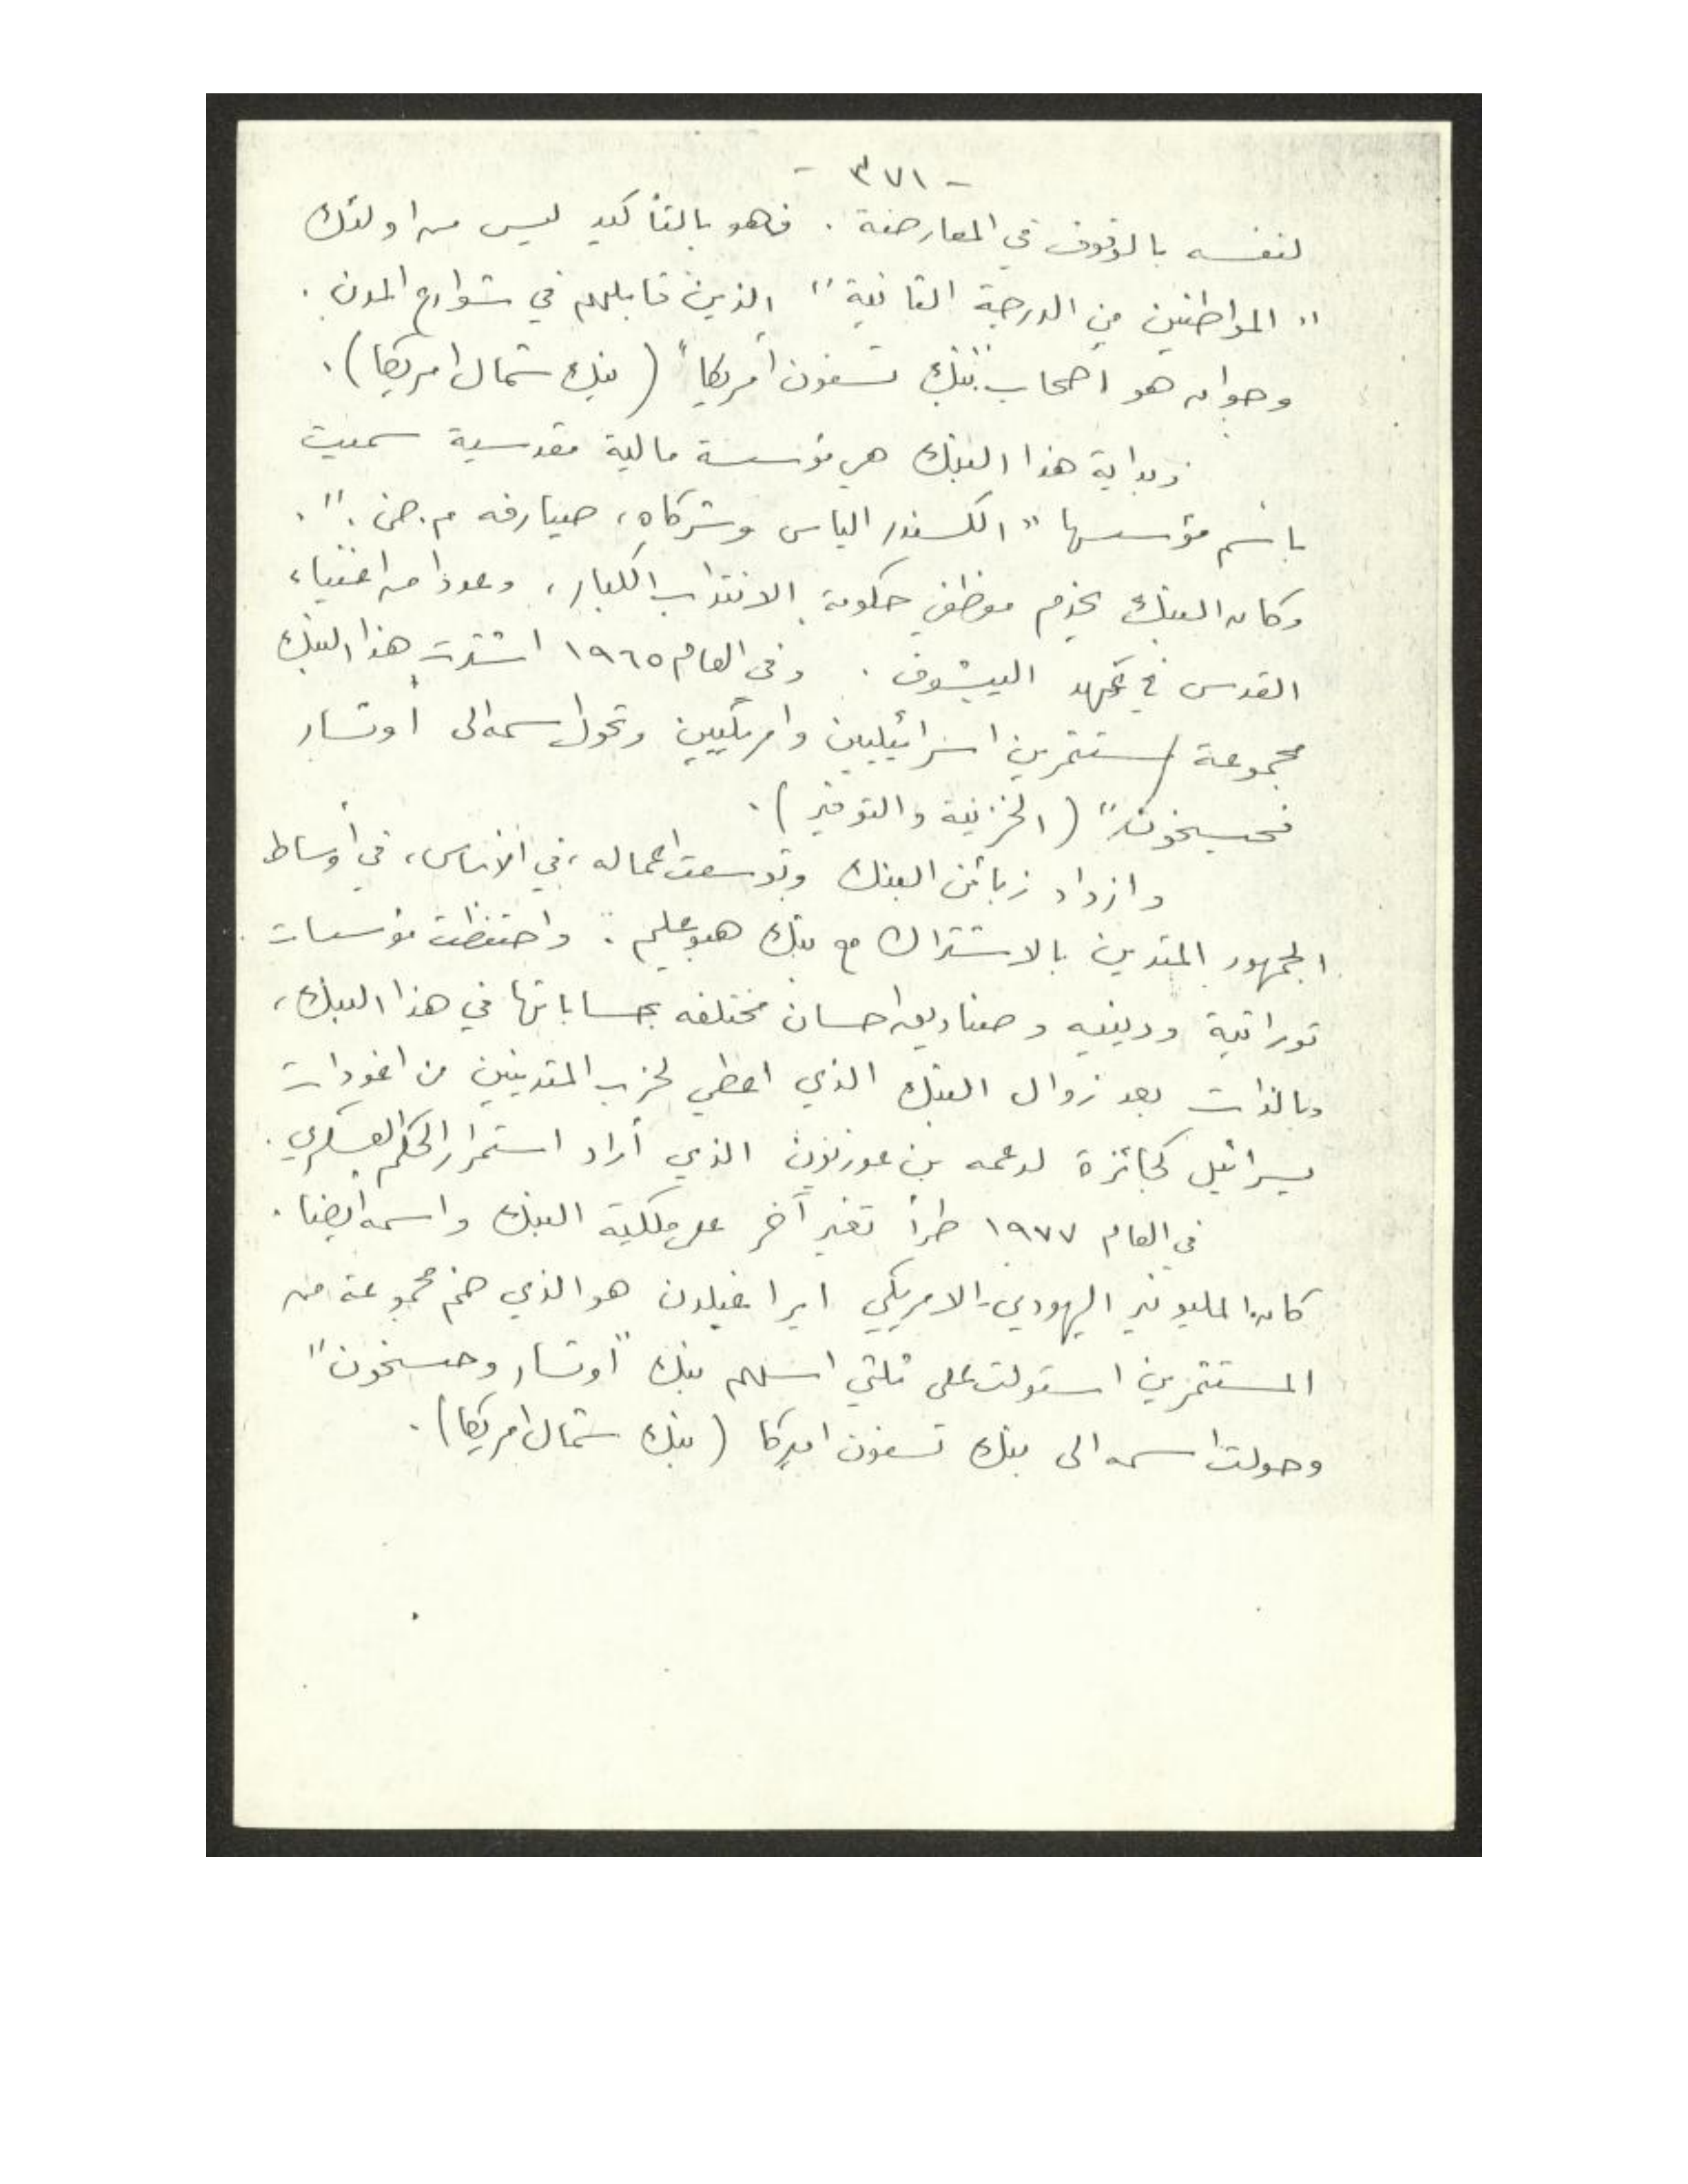 - ٣٧١ -
لنفسه بالوقوف في المعارضة . فهو بالتأكيد ليس من اولئك
" المواطنين من الدرجة الثانية " الذين قابلهم في شوارع المدن .
وجوابه هو اصحاب "بنك تسفون أمريكا" ( بنك شمال امريكا ) .
وبداية هذا البنك هي مؤسسة مالية مقدسية سميت
باسم مؤسسها " الكسندر الياس وشركاه ، صيارفه م . ض . " .
وكان البنك يخدم موظفي حكومة الانتداب الكبار ، وعددا من اغنياء
القدس في عهد الييشوف . وفي العام ١٩٦٥ اشترت هذا البنك
مجموعة مستثمرين اسرائيليين وامريكيين وتحول اسمه الى أوتسار
فحسيخون" ( الخزينة والتوفير ) .
وازداد زبائن البنك وتوسعت اعماله ، في الاساس ، في أوساط
الجمهور المتدين بالاشتراك مع بنك هبوعليم . واحتفظت مؤسسات
توراتية ودينيه وصناديق احسان مختلفه بحساباتها في هذا البنك ،
وبالذات بعد زوال البنك الذي اعطي لحزب المتدينين من اغودات
يسرائيل كجائزة لدعمه بن غوريون الذي أراد استمرار الحكم العسكري .
في العام ١٩٧٧ طرأ تغير آخر على ملكية البنك واسمه أيضا .
كان المليونير اليهودي - الامريكي ايرا غيلدن هو الذي ضم مجموعة من
المستثمرين استولت على ثلثي اسهم بنك "أوتسار وحسخون"
وحولت اسمه الى بنك تسفون اميركا ( بنك شمال امريكا ) .